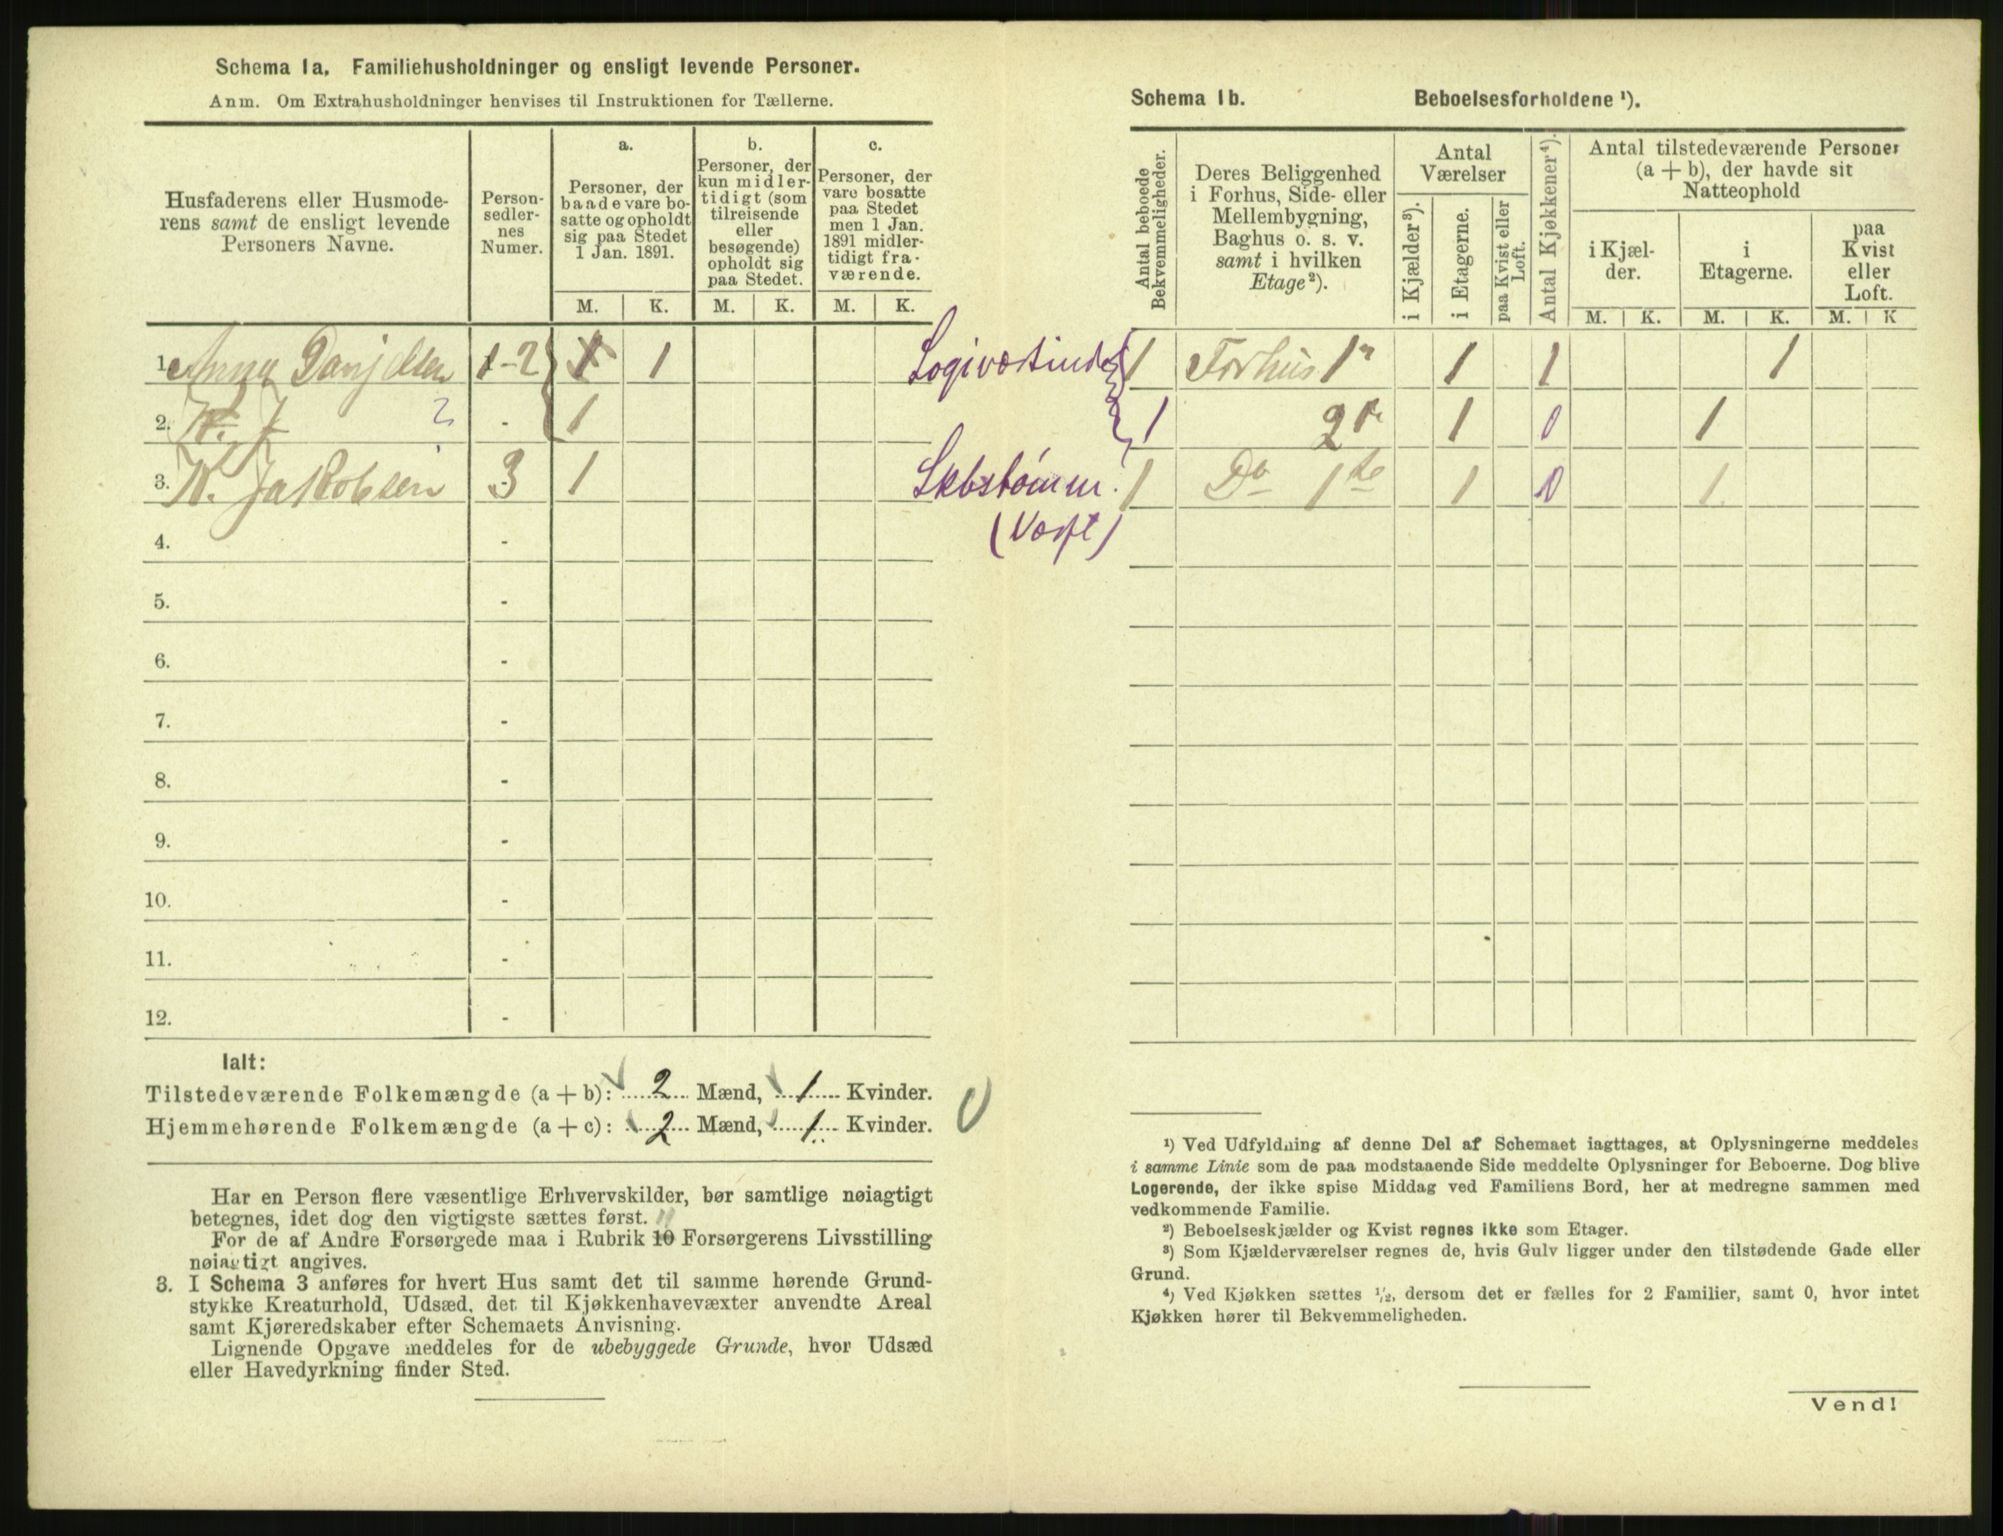 Schema 1a. Familiehusholdninger og ensligt levende Personer.
Anm. Om Extrahusholdninger henvises til Instruktionen for Tællerne.
Husfaderens eller Husmoderens samt de ensligt levende Personers Navne.
Personsedlernes Numer.
a.
Personer, der baade vare bosatte og opholdt sig paa Stedet 1 Jan. 1891.
b.
Personer, der kun midlertidigt (som tilreisende eller besøgende) opholdt sig paa Stedet.
c.
Personer, der vare bosatte paa Stedet men 1 Jan. 1891 midlertidigt fraværende.
M. K. M. K. M. K.
1. Anna Danjelsen 1-2 1 1 Logivertinde
2. W. J ? - 1
3. W. Jakobsen 3 1
(Værft)
4. -
5. -
6. -
7. -
8. -
9. -
10. -
11. -
12. -
Ialt:
Tilstedeværende Folkemængde (a + b): 2 Mænd, 1 Kvinder.
Hjemmehørende Folkemængde (a + c): 2 Mænd, 1 Kvinder.
Har en Person flere væsentlige Erhvervskilder, bør samtlige nøiagtigt
betegnes, idet dog den vigtigste sættes først.
For de af Andre Forsørgede maa i Rubrik 10 Forsørgerens Livsstilling
nøiagtigt angives.
3. I Schema 3 anføres for hvert Hus samt det til samme hørende Grund-
stykke Kreaturhold, Udsæd, det til Kjøkkenhavevæxter anvendte Areal
samt Kjøreredskaber efter Schemaets Anvisning.
Lignende Opgave meddeles for de ubebyggede Grunde, hvor Udsæd
eller Havedyrkning finder Sted.
Schema 1b. Beboelsesforholdene ¹).
Antal beboede Bekvemmeligheder.
Deres Beliggenhed i Forhus, Side- eller Mellembygning, Baghus o. s. v. samt i hvilken Etage ²).
Antal Værelser
i Kjælder ³).
i Etagerne.
paa Kvist eller Loft.
Antal Kjøkkener ⁴).
Antal tilstedeværende Personer (a + b), der havde sit Natteophold
i Kjælder.
i Etagerne.
paa Kvist eller Loft.
M. K. M. K. M. K
1 Forhus 1 1 1 1
1 2 1 0 1
1 Do 1 1 0 1
¹) Ved Udfyldning af denne Del af Schemaet iagttages, at Oplysningerne meddeles
i samme Linie som de paa modstaaende Side meddelte Oplysninger for Beboerne. Dog blive
Logerende, der ikke spise Middag ved Familiens Bord, her at medregne sammen med
vedkommende Familie.
²) Beboelseskjælder og Kvist regnes ikke som Etager.
³) Som Kjælderværelser regnes de, hvis Gulv ligger under den tilstødende Gade eller
Grund.
⁴) Ved Kjøkken sættes ½, dersom det er fælles for 2 Familier, samt 0, hvor intet
Kjøkken hører til Bekvemmeligheden.
Vend!